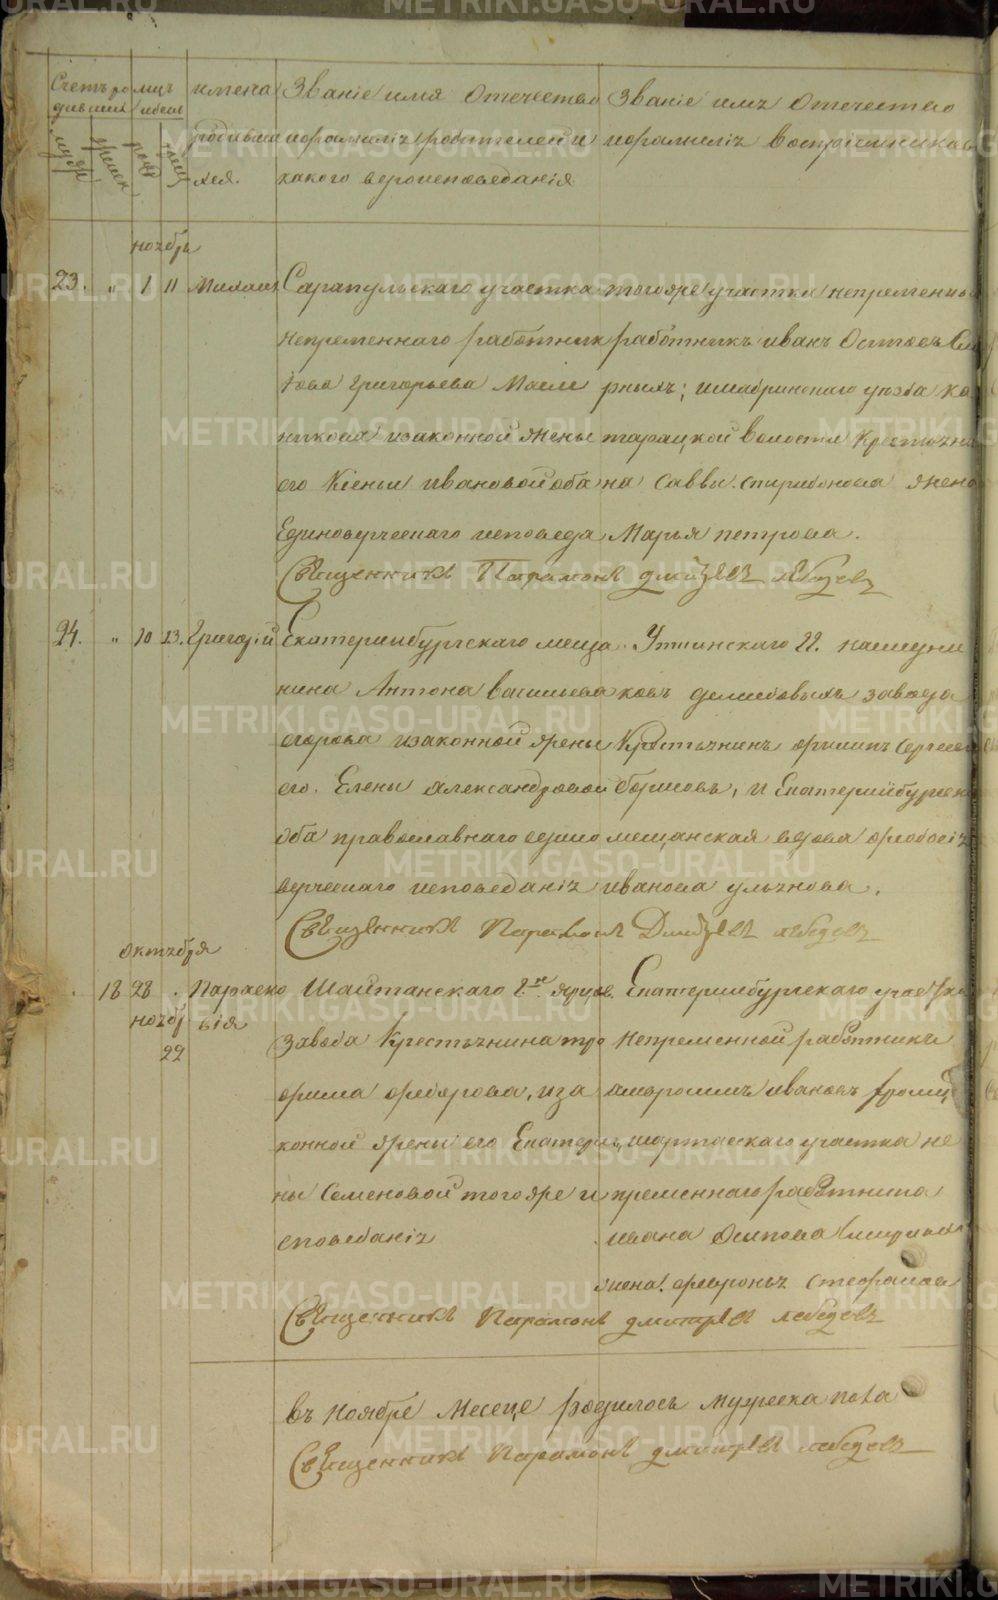 METRIKI.GASO-URAL.RU
Счетъ ро
дившихъ
муж
женск
мцъ
рожд
имена
родивши
хся.
Званіе имя Отечество
и фамиліи родителей и
какого вероисповеданія
Званіе имя Отечество
и фамиліи воспріемниковъ
ноябрь
23. " 1 11 Михаил
Сарапульскаго участка
непременнаго работник
Григорьева
и законной жены
его Ксеньи ивановой оба
Единоверческаго исповеда
тогоже участка непременны
работникъ иванъ
уезда
волости Крестьяни
на Саввы Спиридонова жена
Марья петрова.
Священникъ Парамонъ Дмитріевъ Лебедевъ
24. " 10 13. Григорій
Екатеринбургскаго меща
нина Антона васильева
егорова и законной жены
его Елены Александровой
оба православнаго едино
верческаго исповеданія
Уткинскаго гг. наследни
ковъ демидовыхъ завода
Крестьянинъ филипъ Сергеевъ
и Екатеринбургска
мещанская вдова федосія
иванова
Священникъ Парамонъ Дмитріевъ Лебедевъ
октября
18 28 Параско
ноябр вія
22
Шайтанскаго г.г. ярцов.
завода Крестьянина тро
фима федорова, и за
конной жены его Екатери
ны Семеновой тогоже и
споведанія
Екатеринбургскаго участка
Непременной работникъ
ивановъ
шарташскаго участка не
пременнаго работника
ивана Осипова
жена февронья Стефанова
Священникъ Парамонъ Дмитріевъ Лебедевъ
въ Ноябре Месеце родилось мужеска пола
Священникъ Парамонъ Дмитріевъ Лебедевъ